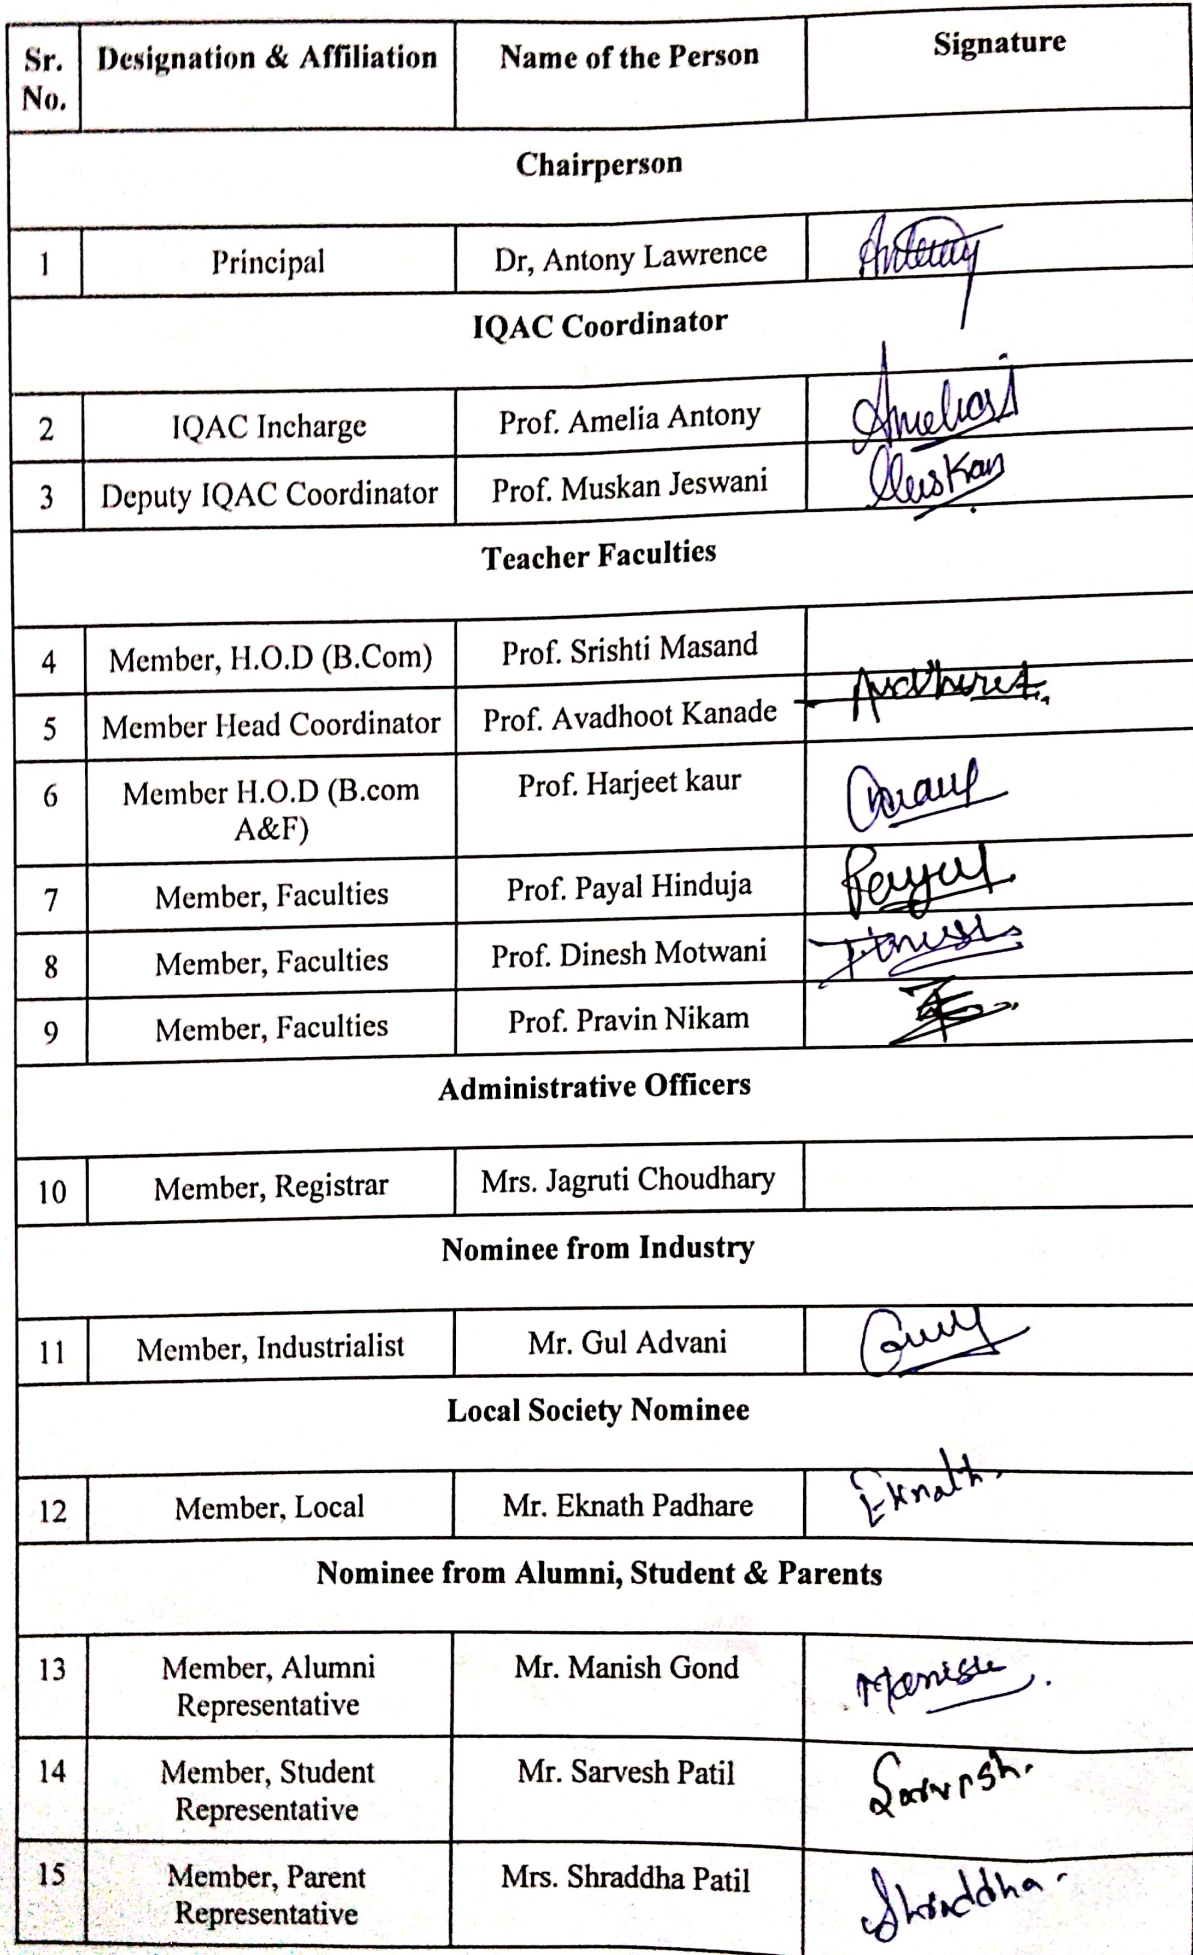 Sr. No. Designation & Affiliation Name of the Person Signature
Chairperson
1 Principal Dr, Antony Lawrence Antony
IQAC Coordinator
2 IQAC Incharge Prof. Amelia Antony
3 Deputy IQAC Coordinator Prof. Muskan Jeswani Muskan
Teacher Faculties
4 Member, H.O.D (B.Com) Prof. Srishti Masand
5 Member Head Coordinator Prof. Avadhoot Kanade
6 Member H.O.D (B.com A&F) Prof. Harjeet kaur
7 Member, Faculties Prof. Payal Hinduja Payal
8 Member, Faculties Prof. Dinesh Motwani
9 Member, Faculties Prof. Pravin Nikam
Administrative Officers
10 Member, Registrar Mrs. Jagruti Choudhary
Nominee from Industry
11 Member, Industrialist Mr. Gul Advani
Local Society Nominee
12 Member, Local Mr. Eknath Padhare Eknath.
Nominee from Alumni, Student & Parents
13 Member, Alumni Representative Mr. Manish Gond Manish
14 Member, Student Representative Mr. Sarvesh Patil Sarvesh.
15 Member, Parent Representative Mrs. Shraddha Patil Shraddha